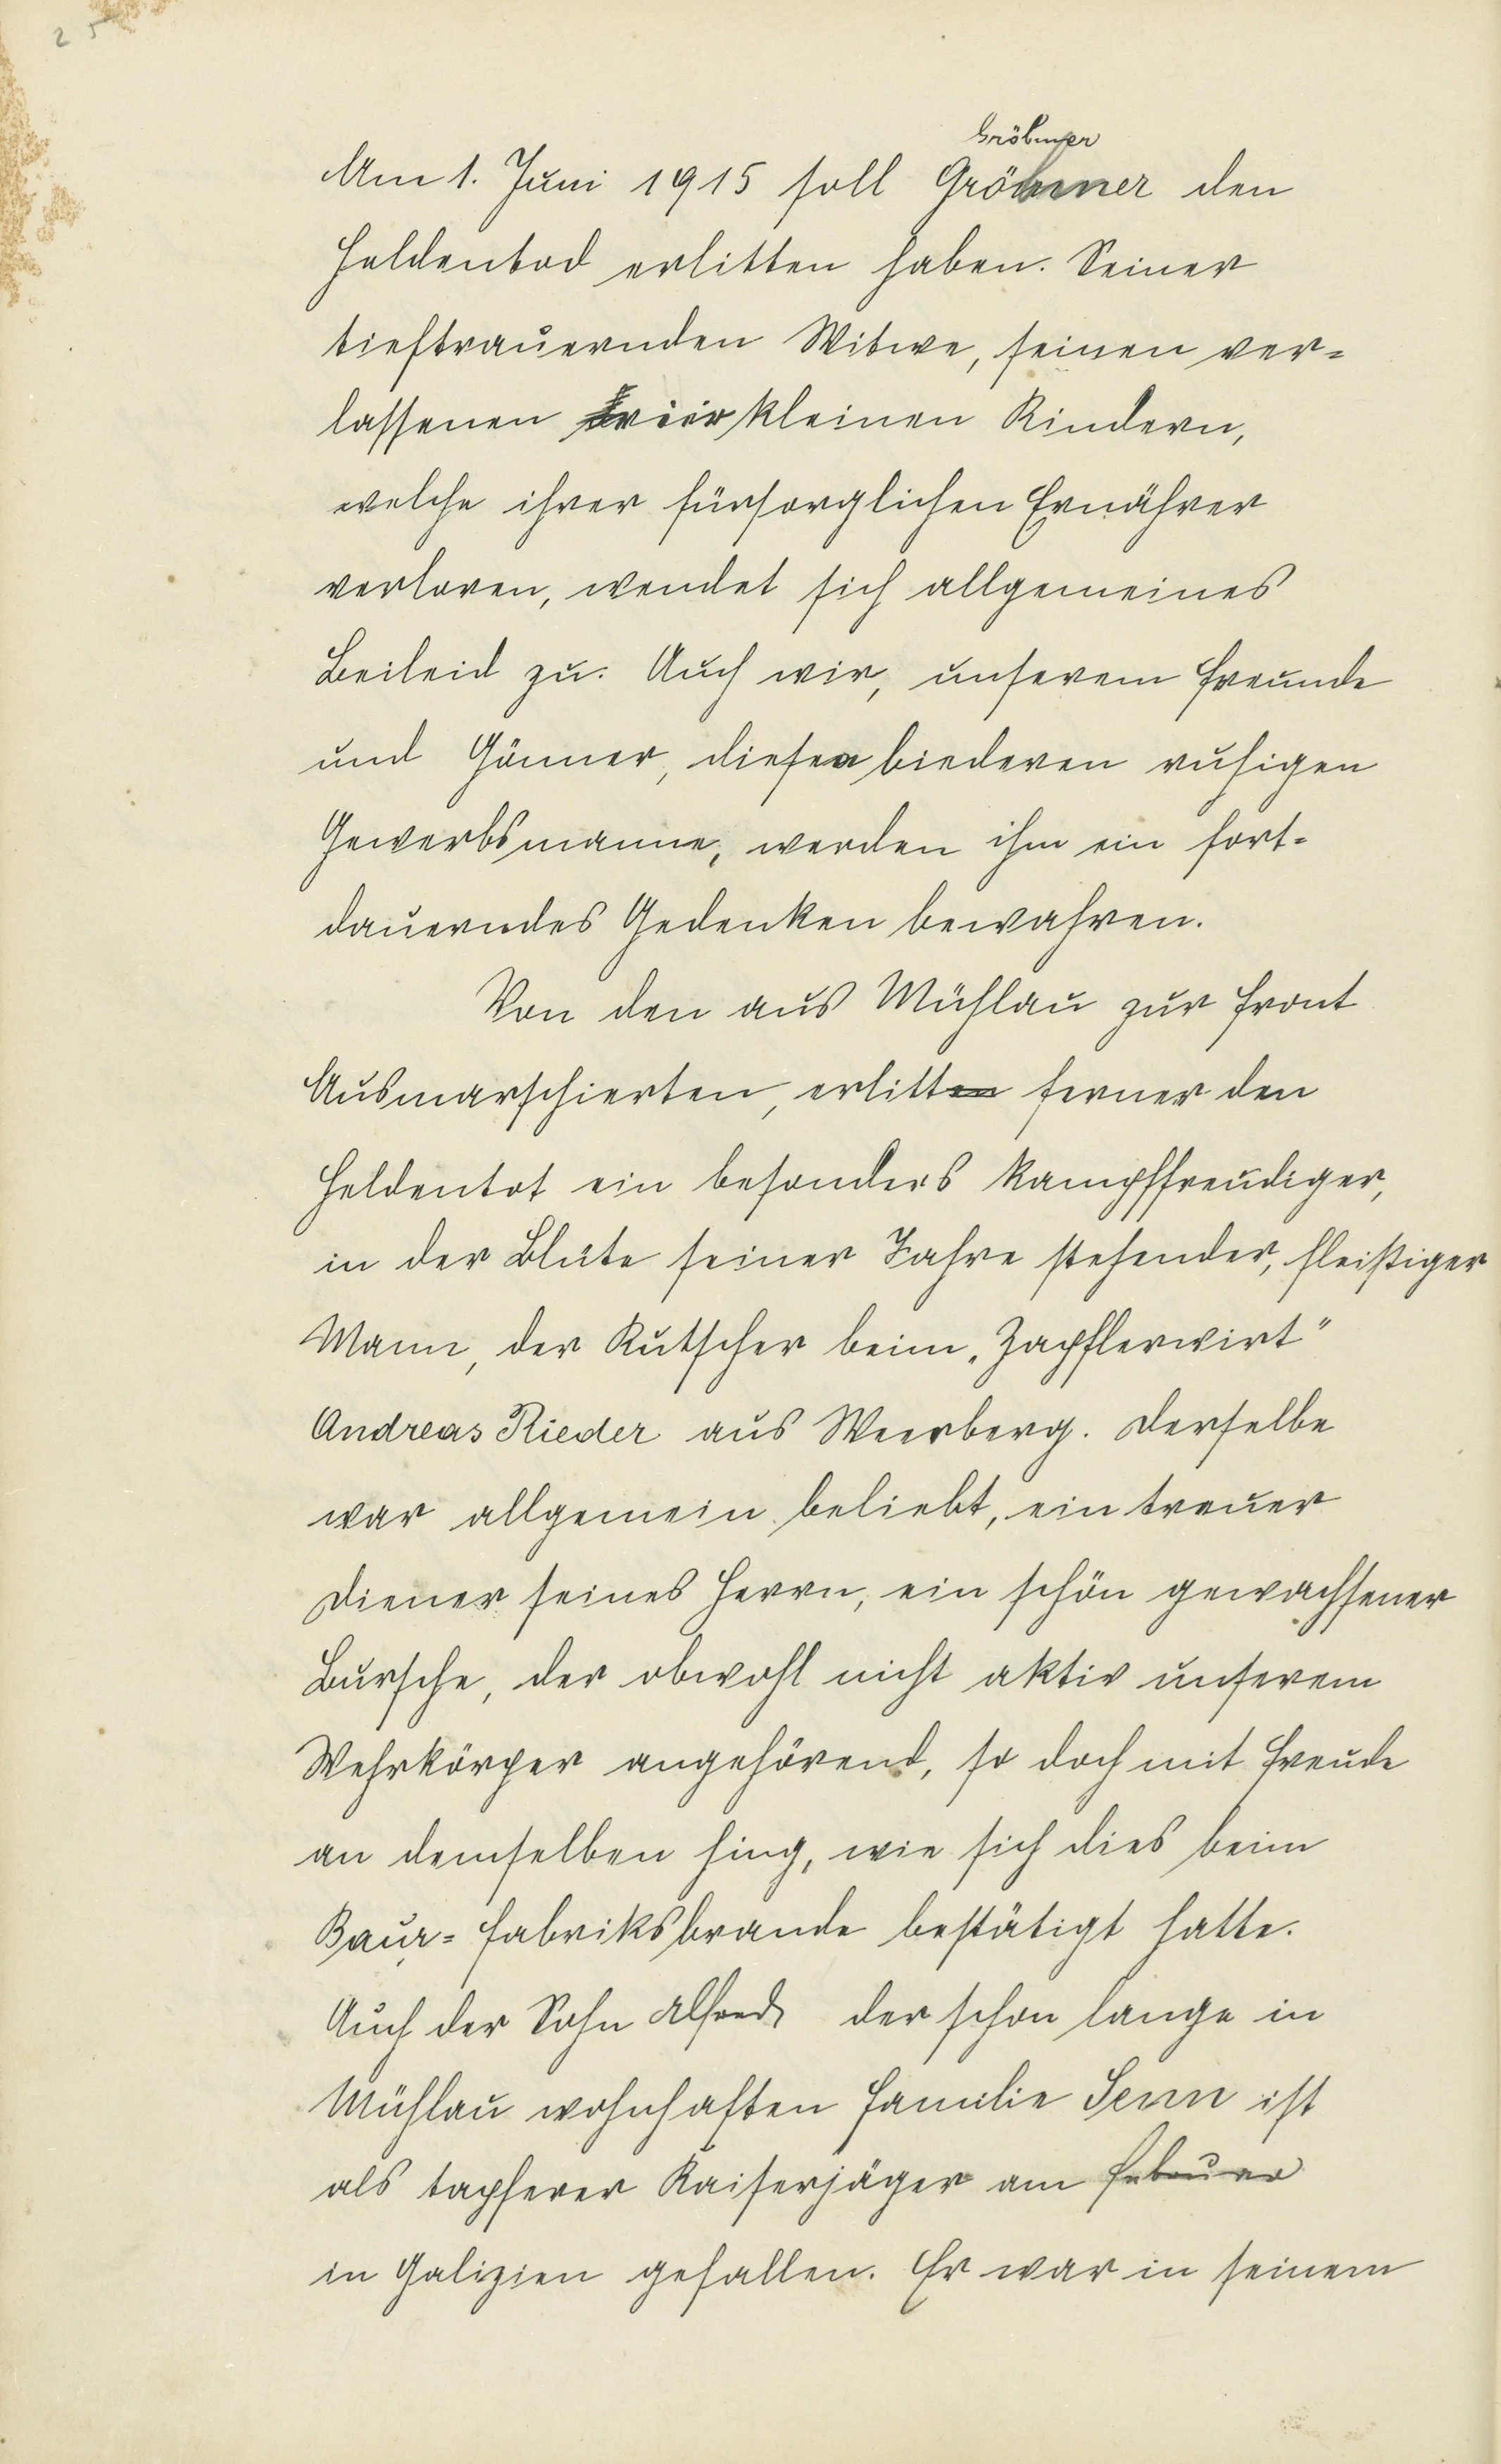 25
Gröbmer
Am 1. Juni 1915 soll Gröbmer den
Heldentod erlitten haben. Seiner
tieftrauernden Witwe, seinen ver=
lassenen vier kleinen Kindern,
welche ihrer fürsorglichen Ernährer
verloren, wendet sich allgemeines
Beileid zu. Auch wir, unserem Freunde
und Gönner, diesen biederen ruhigen
Gewerbsmanne, werden ihm ein fort=
dauerndes Gedenken bewahren.
Von den aus Mühlau zur Front
Ausmarschierten, erlitten ferner den
Heldentot ein besonders kampffreudiger,
in der Blüte seiner Jahre stehender, fleißiger
Mann, der Kutscher beim „Zapflerwirt"
Andreas Rieder aus Weerberg. Derselbe
war allgemein beliebt, ein treuer
Diener seines Herrn, ein schön gewachsener
Bursche, der obwohl nicht aktiv unserem
Wehrkörper angehörend, so doch mit Freude
an demselben hing, wie sich dies beim
Baur= Fabriksbrande bestätigt hatte.
Auch der Sohn Alfred der schon lange in
Mühlau wohnhaften Familie Senn ist
als tapferer Kaiserjäger am Februar
in Galizien gefallen. Er war in seinem